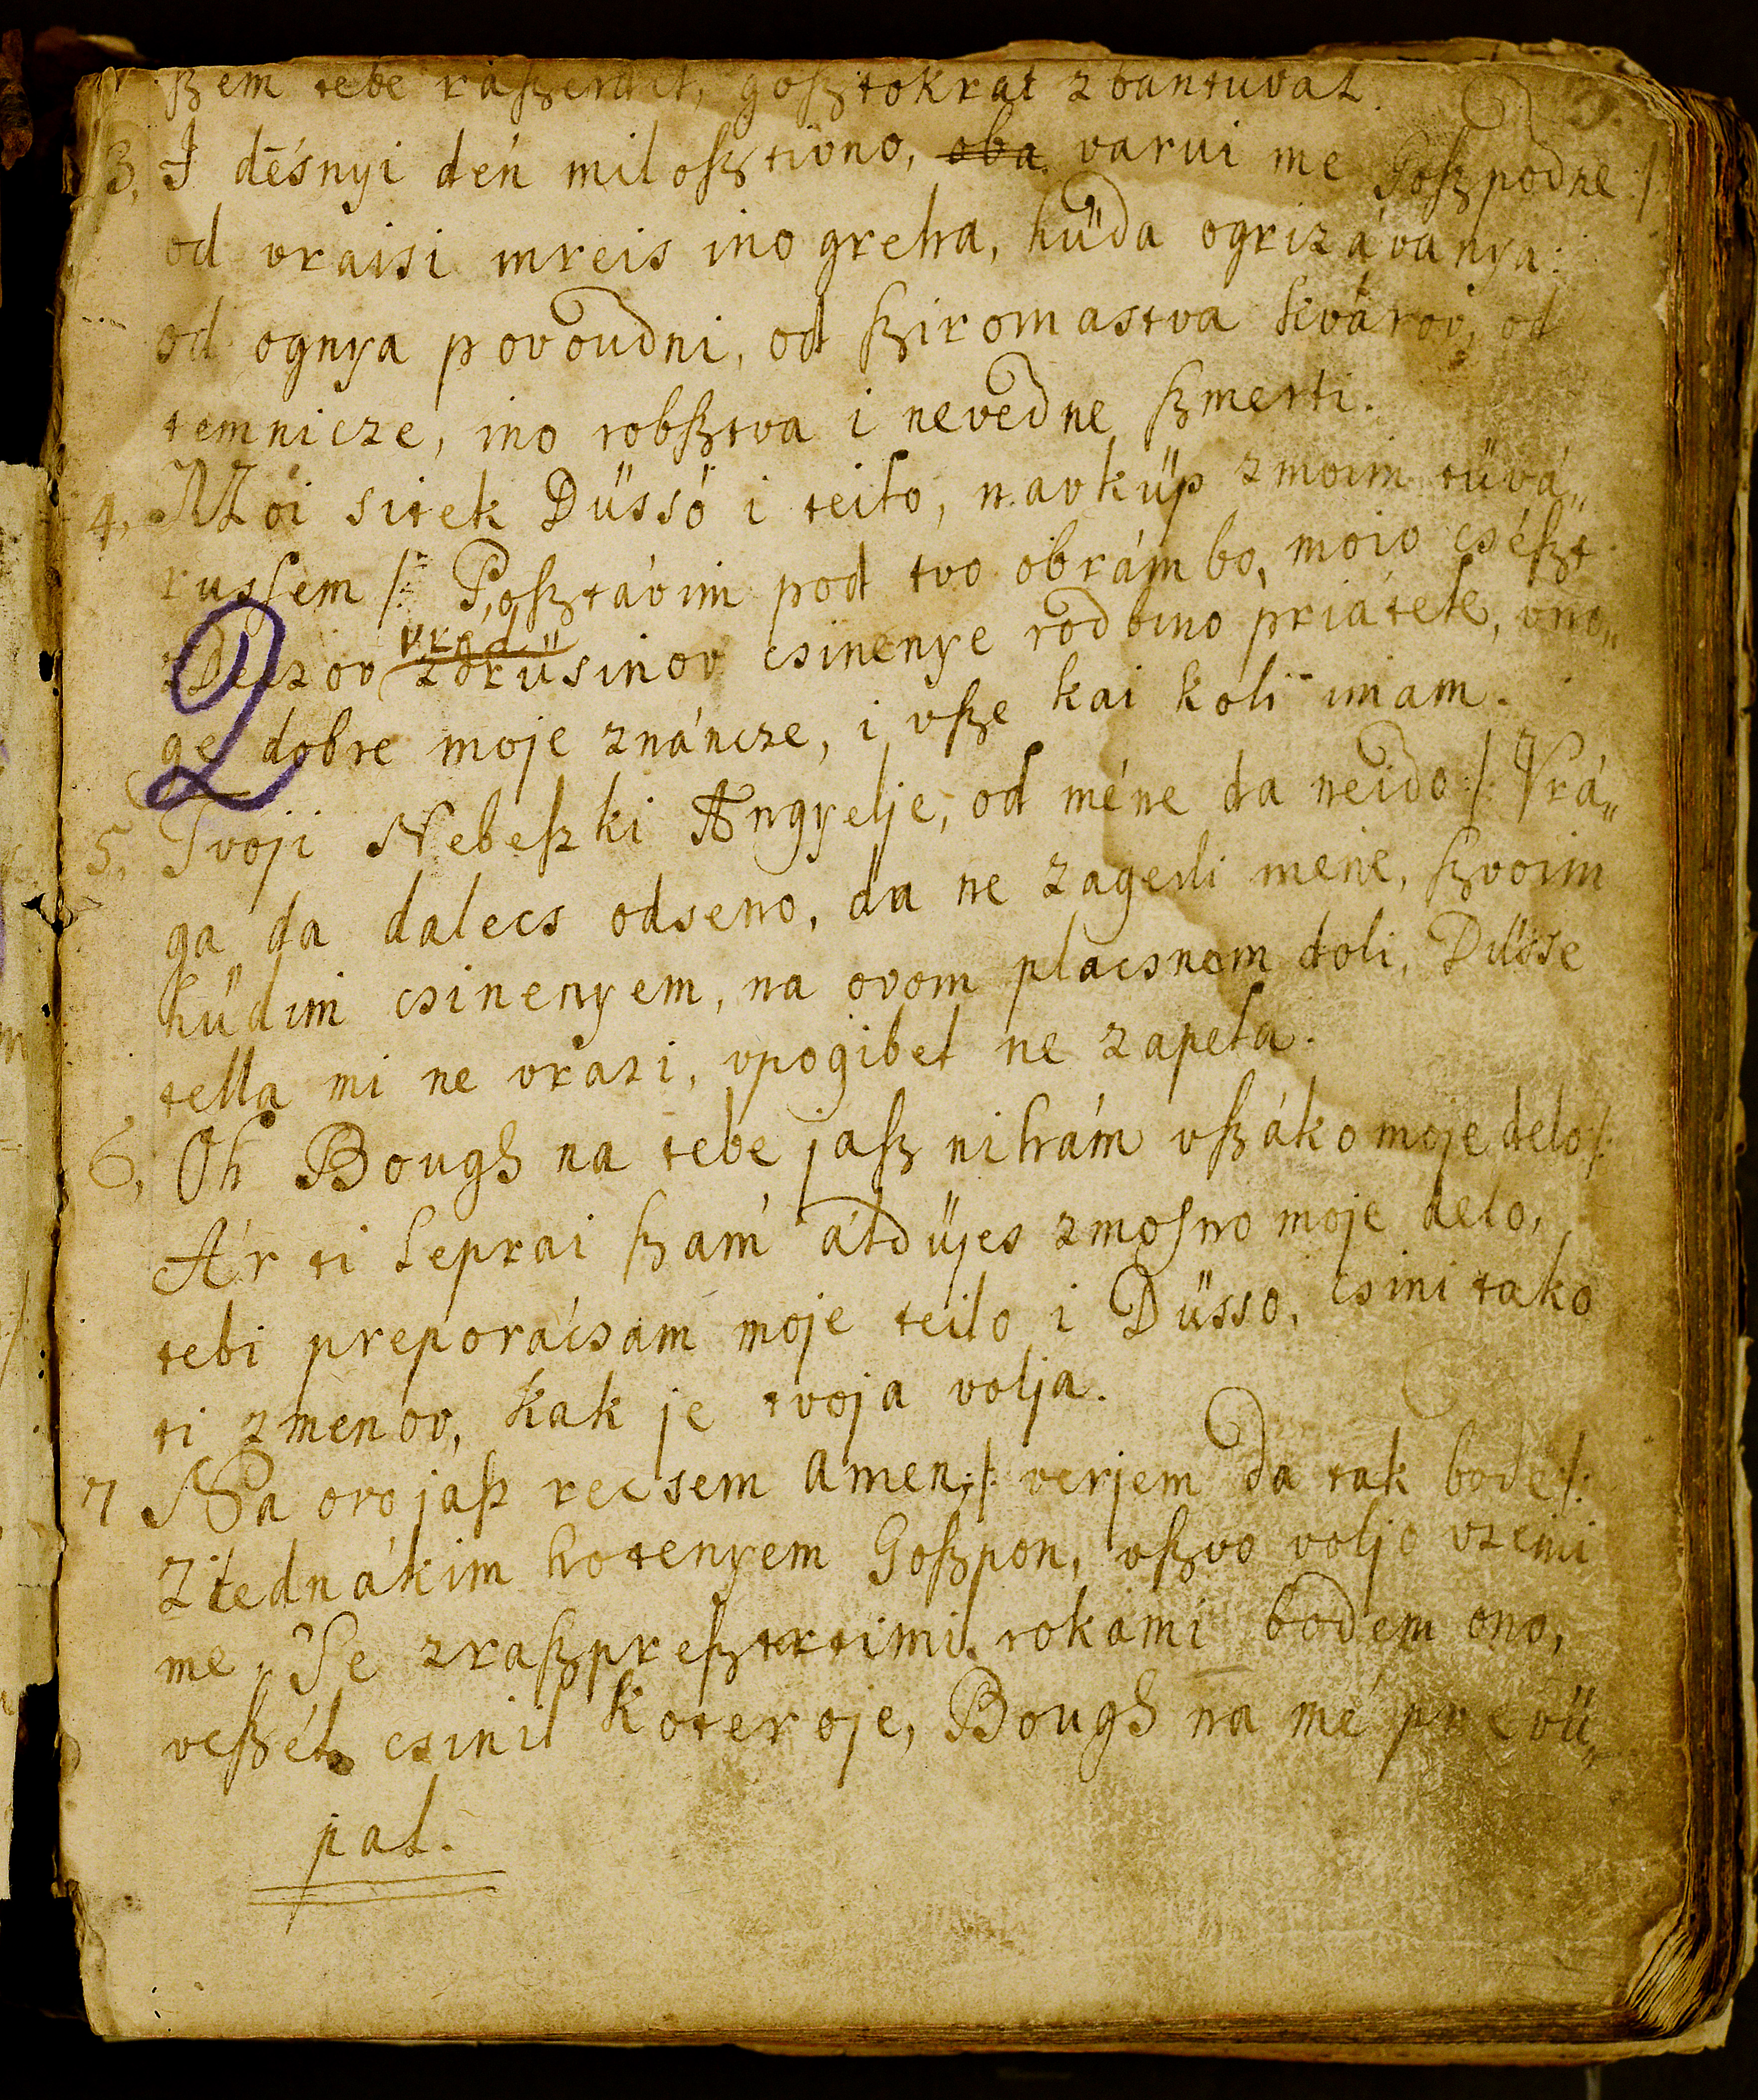 ſzem tebe raſzerdil, goſztokrat zbantuval.
3. I dēsnyi dén miloſztivno, oba varui me Goſzpodne /
od vraisi mreis ino greha, hüda ogrizávanya:
od ognya povoudni, od ſziromastva kvárov, od
temnicze, ino robſztva i nevedne ſzmerti.
4, Moi sitek Düssö i teilo, navküp zmoim tüvá„
russem /: Poſztávim pod tvo obrámbo, moio cséſzt
zDeczov vred zdrüsinov csinenye rodbino priátele, vno„
ge dobre moje znáncze, i vſze kai koli imam.
2
5, Tvoji Nebeſzki Angyelje, od méne da neido /: Vrá„
ga da dalecs odseno, da ne zagerli mene, ſzvoim
hüdim csinenyem, na ovom placsnom doli, Düsse
tella mi ne vrazi, vpogibel ne zapela.
6, Oh Bough na tebe jaſz niham vſzáko moje delo /:
Ár ti leprai ſzam áldüjes zmosno moje delo,
tebi preporácsam moje teilo i Düsso, csini tako
ti zmenov, kak je tvoja volja.
7 Na ovo jaſz recsem Amen /: verjem da tak bode /:
Ziednákim hotenyem Goſzpon, vſzvo voljo vzemi
me, Je zraſzpreſztrtimi rokami bodem ono,
veſzél csinil koteroje, Bough na mé prevü„
pal.